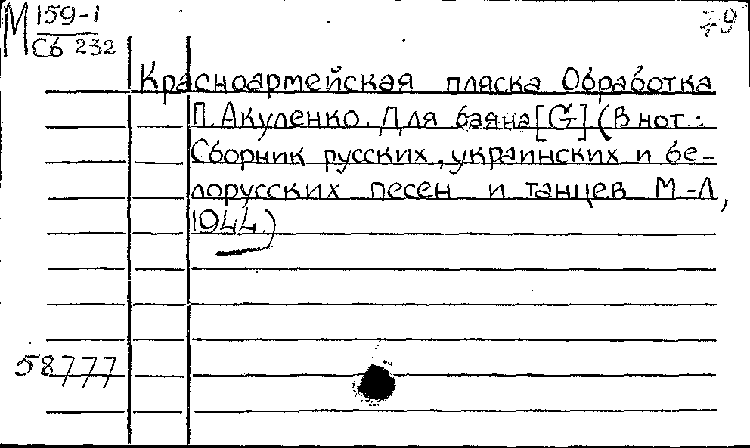 М 159-1
Сб 232
79
Красноармейская пляска Обработка
П. Акуленко. Для баяна [G] (В нот.:
Сборник русских, украинских и бе-
лорусских песен и танцев М-Л,
1944.)
58777